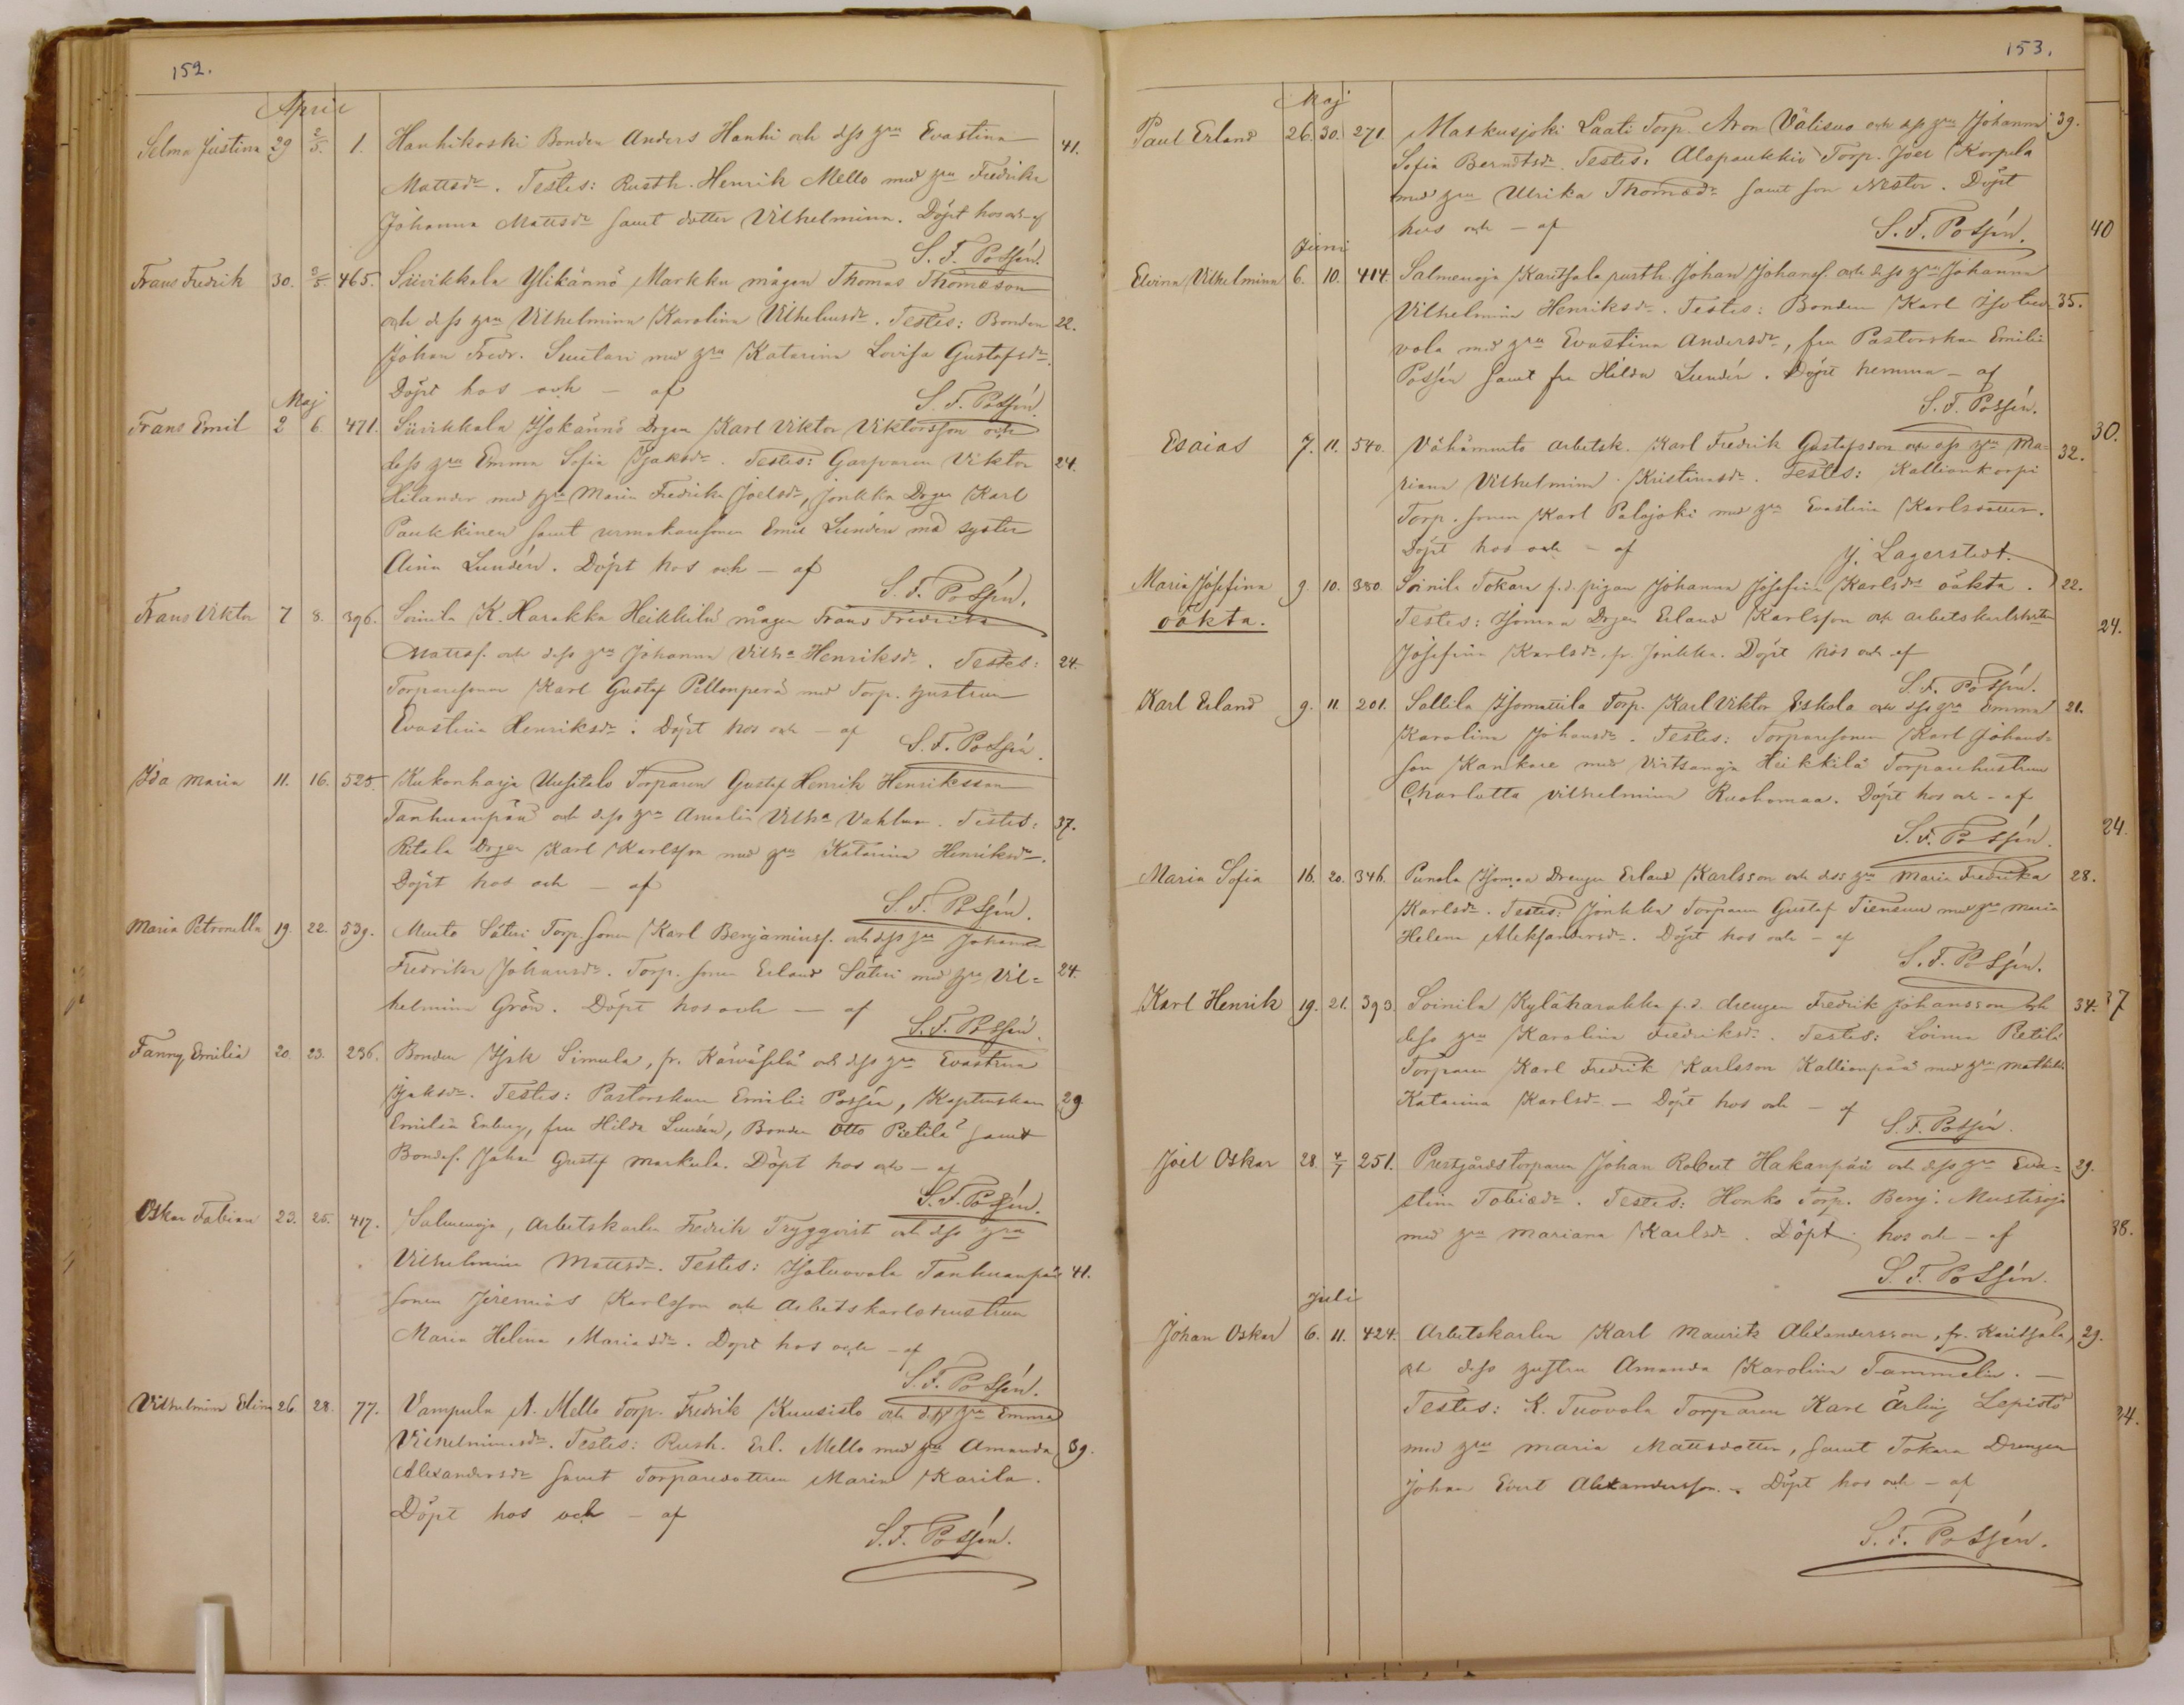 152.
April
Selma Justina 29 2/5. 1. Hanhikoski Bonden Anders Hanhi och dess hru Evastina 41.
Mattsdr. Testes: Rusth. Henrik Mello med hru Fredrika
Johanna Mattsdr samt dotter Vilhelmina. Döpt hos och - af
S. F. Possén.
Frans Fredrik 30. 3/5 465. Siivikkala Ylikännö Markku mågen Thomas Thomasson
och dess hru Vilhelmina Karolina Vilhelmsdr. Testes: Bonden 22.
Johan Fredr. Suutari med hru Katarina Lovisa Gustafsdr.
Döpt hos och - af
S. F. Possén.
Maj
Frans Emil 2 6. 471. Siivikkala Isokännö Drgen Karl Viktor Viktorsson och
dess hru Emma Sofia Isaksdr. Testes: Garfvaren Viktor 24.
Hilander med hru Maria Fredrika Joelsdr, Jonkka Drgen Karl
Paukkinen samt urmakaresonen Emil Lundén med syster
Aina Lundén. Döpt hos och - af
S. F. Possén.
Frans Viktor 7 8. 396. Soinila K. Harakka Heikkilä mågen Frans Fredrik
Mattss. och dess hru Johanna Vilha Henriksdr. Testes: 24.
Torparesonen Karl Gustaf Pellonperä med Torp. hustrun
Evastina Henriksdr. Döpt hos och - af
S. F. Possén.
Ida Maria 11. 16. 525. Kukonharja Uusitalo Torparen Gustaf Henrik Henriksson
Tanhuanpää och dess hru Amalia Vilha Vahlman. Testes: 37.
Ritala Drgen Karl Karlsson med hru Katarina Henriksdr.
Döpt hos och - af
S. F. Possén.
Maria Petronella 19. 22. 539. Murto Säteri Torp. sonen Karl Benjaminss. och dess hru Johanna
Fredrika Johansdr. Torp. sonen Erland Säteri med hru Vil= 24.
helmina Grön. Döpt hos och - af
S. F. Possén.
Fanny Emilia 20. 23. 236. Bonden Isak Simula, fr. Kärväselä och dess hru Evastina
Isaksdr. Testes: Pastorskan Emilie Possén, Kaptenskan 29
Emilia Enberg, fru Hilda Lundén, Bonden Otto Pietilä samt
Bondes. Johan Gustaf Markula. Döpt hos och - af
S. F. Possén.
Oskar Fabian 23. 25. 417. Salmenoja, Arbetskarlen Fredrik Tryggvist och dess hru
Vilhelmina Mattsdr. Testes: Isotuovola Tanhuanpää 41.
sonen Jeremias Karlsson och Arbetskarlshustrun
Maria Helena Mariasdr. Döpt hos och - af
S. F. Possén.
Vilhelmina Elina 26. 28. 77. Vampula A. Mello Torp. Fredrik Kuusisto och dess hru Emma
Vilhelminasdr. Testes: Rusth. Erl. Mello med hru Amanda 39.
Alexandersdr samt Torparedottren Maria Karila.
Döpt hos och - af
S. F. Possén.
153.
Maj
Paul Erland 26. 30. 271. Matkusjoki Laati Torp. Aron Välisuo och dess hru Johanna 39.
Sofia Berndtsdr. Testes: Alapaukkio Torp. Joel Korpela
med hru Ulrika Thomasdr samt son Nestor. Döpt
hos och - af
S. F. Possén. 40
Juni
Elvina Vilhelmina 6. 10. 414. Salmenoja Karitsala rusth. Johan Johanss. och dess hru Johanna
Vilhelmina Henriksdr. Testes: Bonden Karl Isotuo= 35.
vola med hru Evastina Andersdr, fru Pastorskan Emilie
Possén samt fru Hilda Lundén. Döpt hemma - af
S. F. Possén.
30.
Esaias 7. 11. 540. Vähämurto arbetsk. Karl Fredrik Gustafsson och dess hru Ma= 32.
riana Vilhelmina Kristinasdr. Testes: Kallionkorpi
Torp. sonen Karl Palojoki med hru Evastina Karlsdotter.
Döpt hos och - af
J. Lagerstedt.
Maria Josefina 9. 10. 380. Soinila Tokara f.d. pigan Johanna Josefina Karlsdr oäkta. 22.
oäkta. Testes: Isomaa Drgen Erland Karlsson och arbetskarlshustrun 24.
Josefina Karlsdr, fr. Jonkka. Döpt hos och af
S. F. Possén.
Karl Erland 9. 11. 201. Sallila Isomattila Torp. Karl Viktor Eskola och dess hru Emma 21.
Karolina Johansdr. Testes: Torparesonen Karl Johans=
son Kankare med Virtsanoja Heikkilä Torparehustrun
Charlotta Vilhelmina Ruohomaa. Döpt hos och - af
24.
S. F. Possén.
Maria Sofia 16. 20. 346. Punola Isomaa Drengen Erland Karlsson och dess hru Maria Fredrika 28.
Karlsdr. Testes: Jonkka Torparen Gustaf Tiensuu med hru Maria
Helena Aleksandersdr. Döpt hos och - af
S. F. Possén.
Karl Henrik 19. 21. 393. Soinila Kyläharakka f.d. drengen Fredrik Johansson och 34. 37
dess hru Karolina Fredriksdr. Testes: Loima Pietilä
Torparen Karl Fredrik Karlsson Kallionpää med hru Mathilda
Katarina Karlsdr - Döpt hos och - af
S. F. Possén.
Joel Oskar 28. 4/7 251. Prestgårdstorparen Johan Robert Hakanpää och dess hru Eva= 29.
stina Tobiasdr. Testes: Honko Torp. Benj. Mustioja
med hru Mariana Karlsdr. Döpt hos och - af 38.
S. F. Possén.
Juli
Johan Oskar 6. 11. 424. Arbetskarlen Karl Maurits Alexandersson, fr. Karitsala, 29.
och dess hustru Amanda Karolina Tammelin. -
Testes: K. Tuovola Torparen Karl Ärling Lepistö 24.
med hru Maria Mattsdotter, samt Tokara Drengen
Johan Evert Alexandersson. - Döpt hos och - af
S. F. Possén.